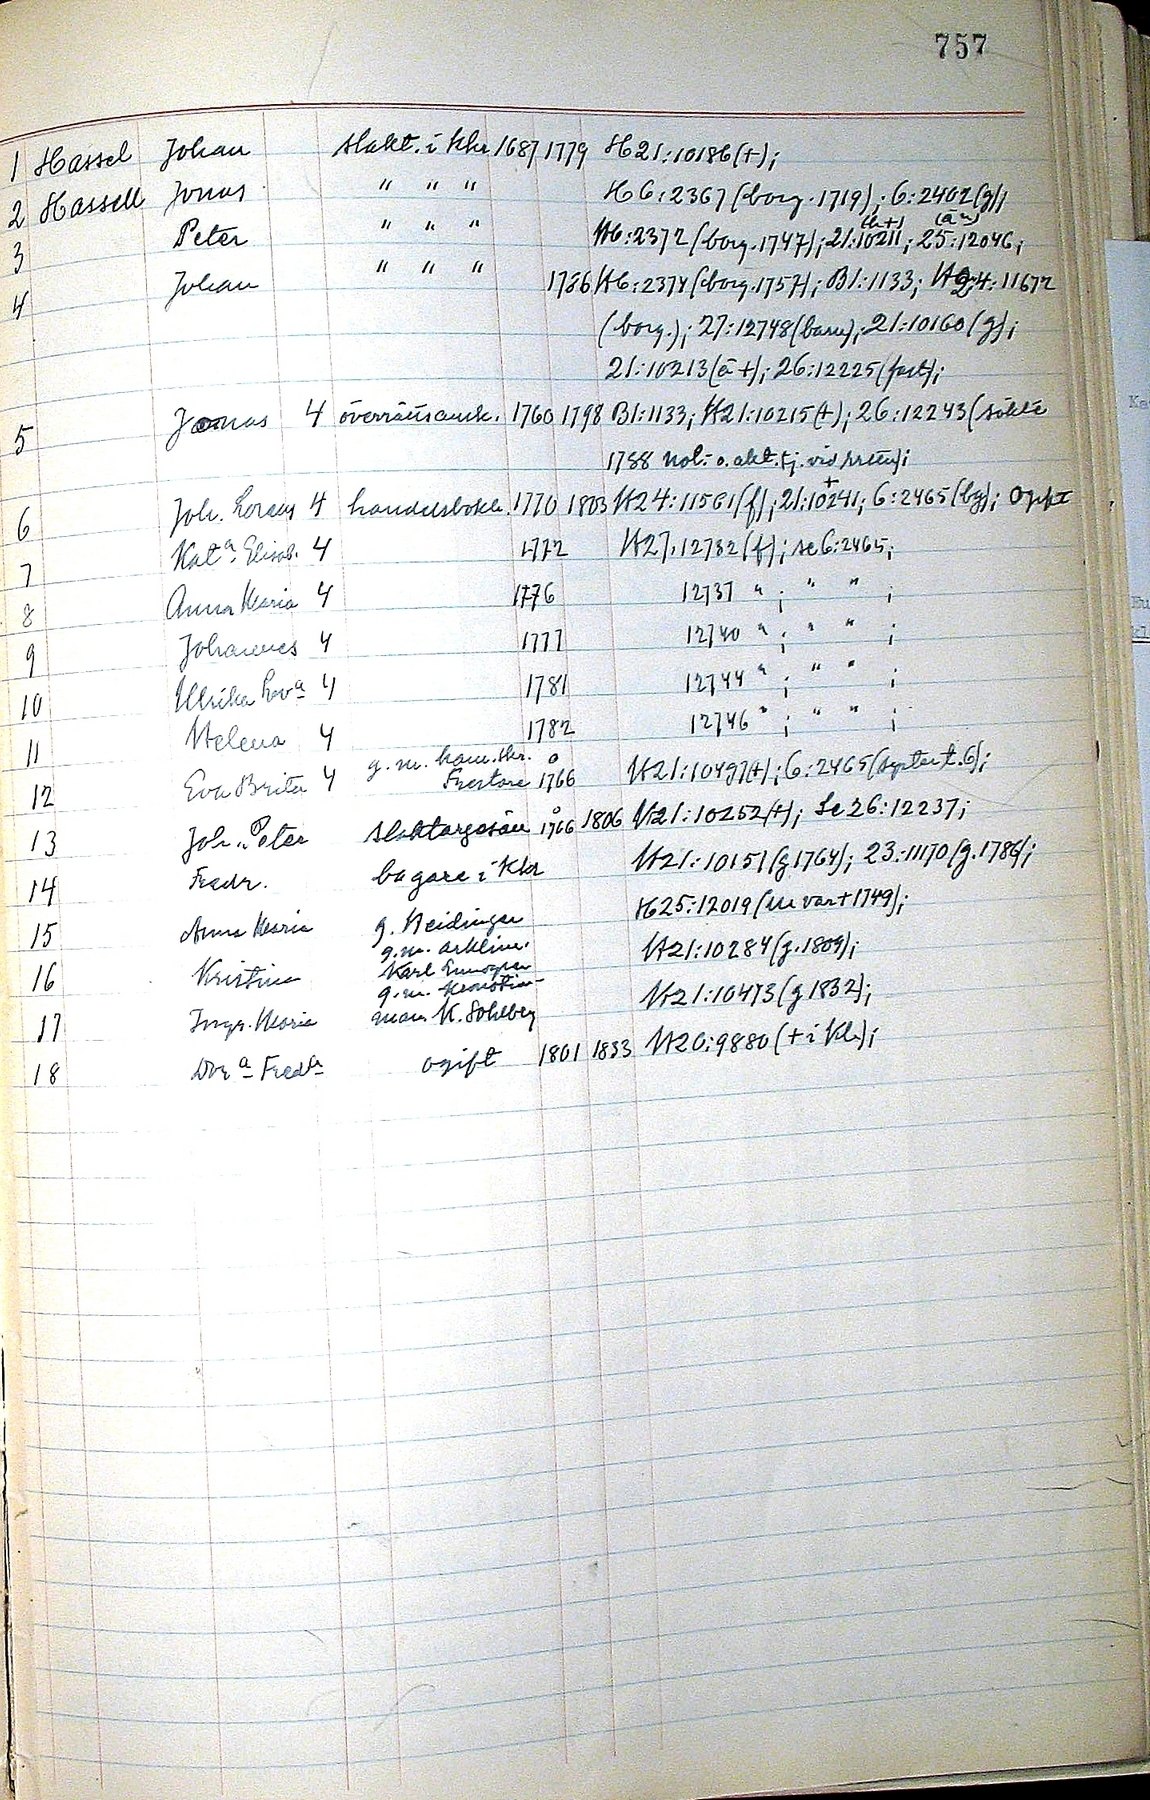 757
1 Hassel Johan slakt. i Khr 1687 1779 H21:10186(+);
2 Hassell Jonas " " " H6:2367(borg.1719); 6:2402(g);
3 Peter " " " H6:2372(borg.1747); 21:10211; 25:12046;
4 Johan " " " 1786 H6:2374(borg.1757); B1:1133; H24:11672
(borg.); 27:12748(barn); 21:10160(g);
21:10213(ä+); 26:12225(fast);
5 Jonas 4 överrättsausk. 1760 1798 B1:1133; H21:10215(+); 26:12243(sökte
1788 not.- o. akt.tj. vid
6 Joh. Lorens 4 handelsbokh. 1770 1803 H24:11561(f); 21:10241; 6:2465(bg);
7 Kat.a Elisab. 4 1772 H27:12732(f); se 6:2465;
8 Anna Maria 4 1776 12737 " ; " " ;
9 Johannes 4 1777 12740 " ; " " ;
10 Ulrika Lov.a 4 1781 12744 " ; " " ;
11 Helena 4 1782 12746 " ; " " ;
g. m.
12 Eva Brita 4 1766 H21:10497(+); 6:2465(syster t. 6);
13 Joh. Peter slaktargesäll 1766 1806 H21:10252(+); Se 26:12237;
14 Fredr. bagare i Khr H21:10151(g 1764); 23:11170(g.1786);
15 Anna Maria g. Neidinger H25:12019(m var + 1749);
g.m. artklinr.
16 Kristina Karl H21:10284(g.1809);
g.m.
17 Inga. Maria man. K. Sohlberg H21:10473(g 1832);
18 Dor.a Fred.ka ogift 1801 1833 H20:9880(+ i Khr);